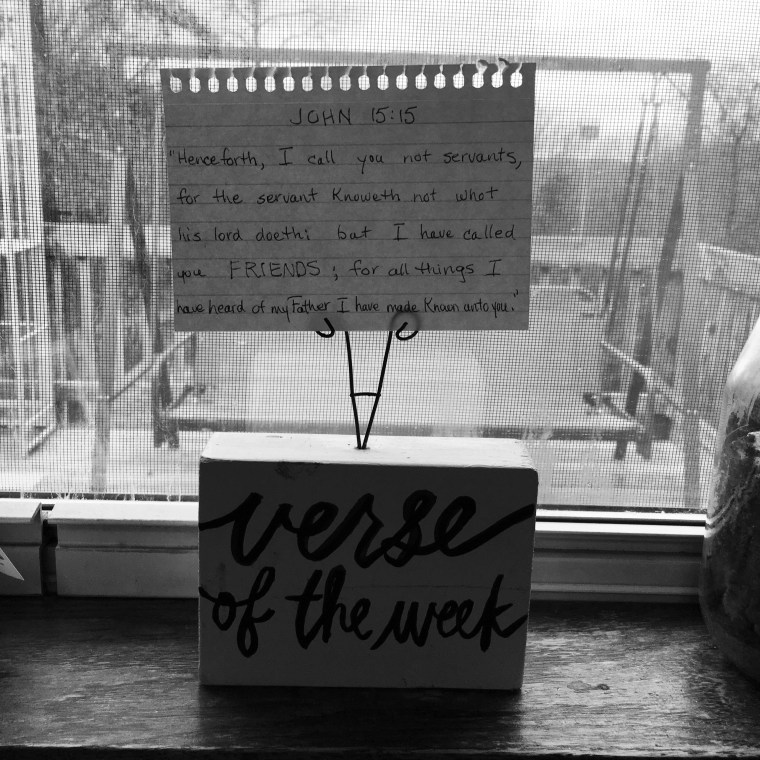 JOHN 15:15
"Henceforth, I call you not servants,
for the servant Knoweth not what
his lord doeth: but I have called
you FRIENDS; for all things I
have heard of my Father I have made Known unto you."
verse
of the week